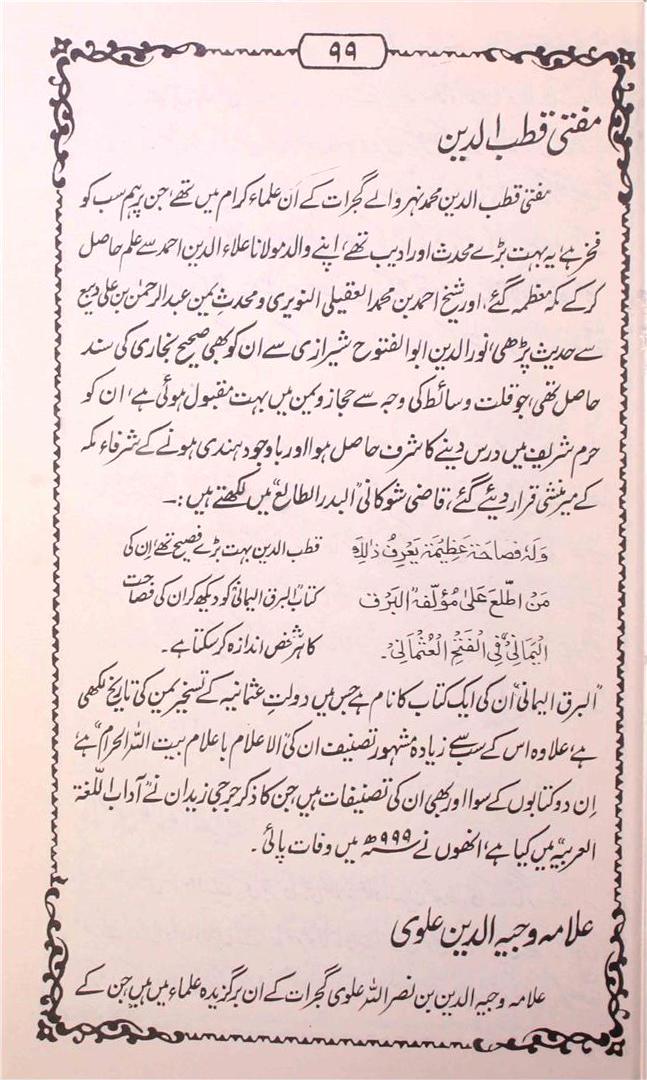 ۹۹
مفتی قطب الدین
مفتی قطب الدین محمد نہروالے گجرات کے ان علماء کرام میں تھے، جن پر ہم سب کو
فخر ہے، یہ بہت بڑے محدث اور ادیب تھے، اپنے والد مولانا علاء الدین احمد سے علم حاصل
کر کے مکہ معظمہ گئے، اور شیخ احمد بن محمد العقیلی النویری و محدثِ یمن عبدالرحمٰن بن علی دیبع
سے حدیث پڑھی، نور الدین ابوالفتوح شیرازی سے ان کو بھی صحیح بخاری کی سند
حاصل تھی، جو قلت وسائط کی وجہ سے حجاز و یمن میں بہت مقبول ہوئی ہے، ان کو
حرم شریف میں درس دینے کا شرف حاصل ہوا اور باوجود ہندی ہونے کے شرفاء مکہ
کے میر منشی قرار دیئے گئے، قاضی شوکانی "البدر الطالع" میں لکھتے ہیں :۔
وَلَہٗ فصاحۃ عَظِیْمۃ یَعْرِفُ ذٰلِكَ قطب الدین بہت بڑے فصیح تھے، اِن کی
مَن اطّلعَ عَلیٰ مُؤلّفہٖ "البَرق کتاب "البرق الیمانی" کو دیکھ کر ان کی فصاحت
الیَمَانِی فِی الْفَتْحِ الْعُثْمَانِی"۔ کا ہر شخص اندازہ کر سکتا ہے۔
"البرق الیمانی" ان کی ایک کتاب کا نام ہے جس میں دولتِ عثمانیہ کے تسخیرِ یمن کی تاریخ لکھی
ہے، علاوہ اس کے سب سے زیادہ مشہور تصنیف ان کی "الاعلام باعلام بیت اللہ الحرام" ہے،
اِن دو کتابوں کے سوا اور بھی ان کی تصنیفات ہیں، جن کا ذکر جرجی زیدان نے "آداب اللّغة
العربیہ" میں کیا ہے، انھوں نے ۹۹۹ھ میں وفات پائی۔
علامہ وجیہ الدین علوی
علامہ وجیہ الدین بن نصر اللہ علوی گجرات کے ان برگزیدہ علماء میں ہیں، جن کے